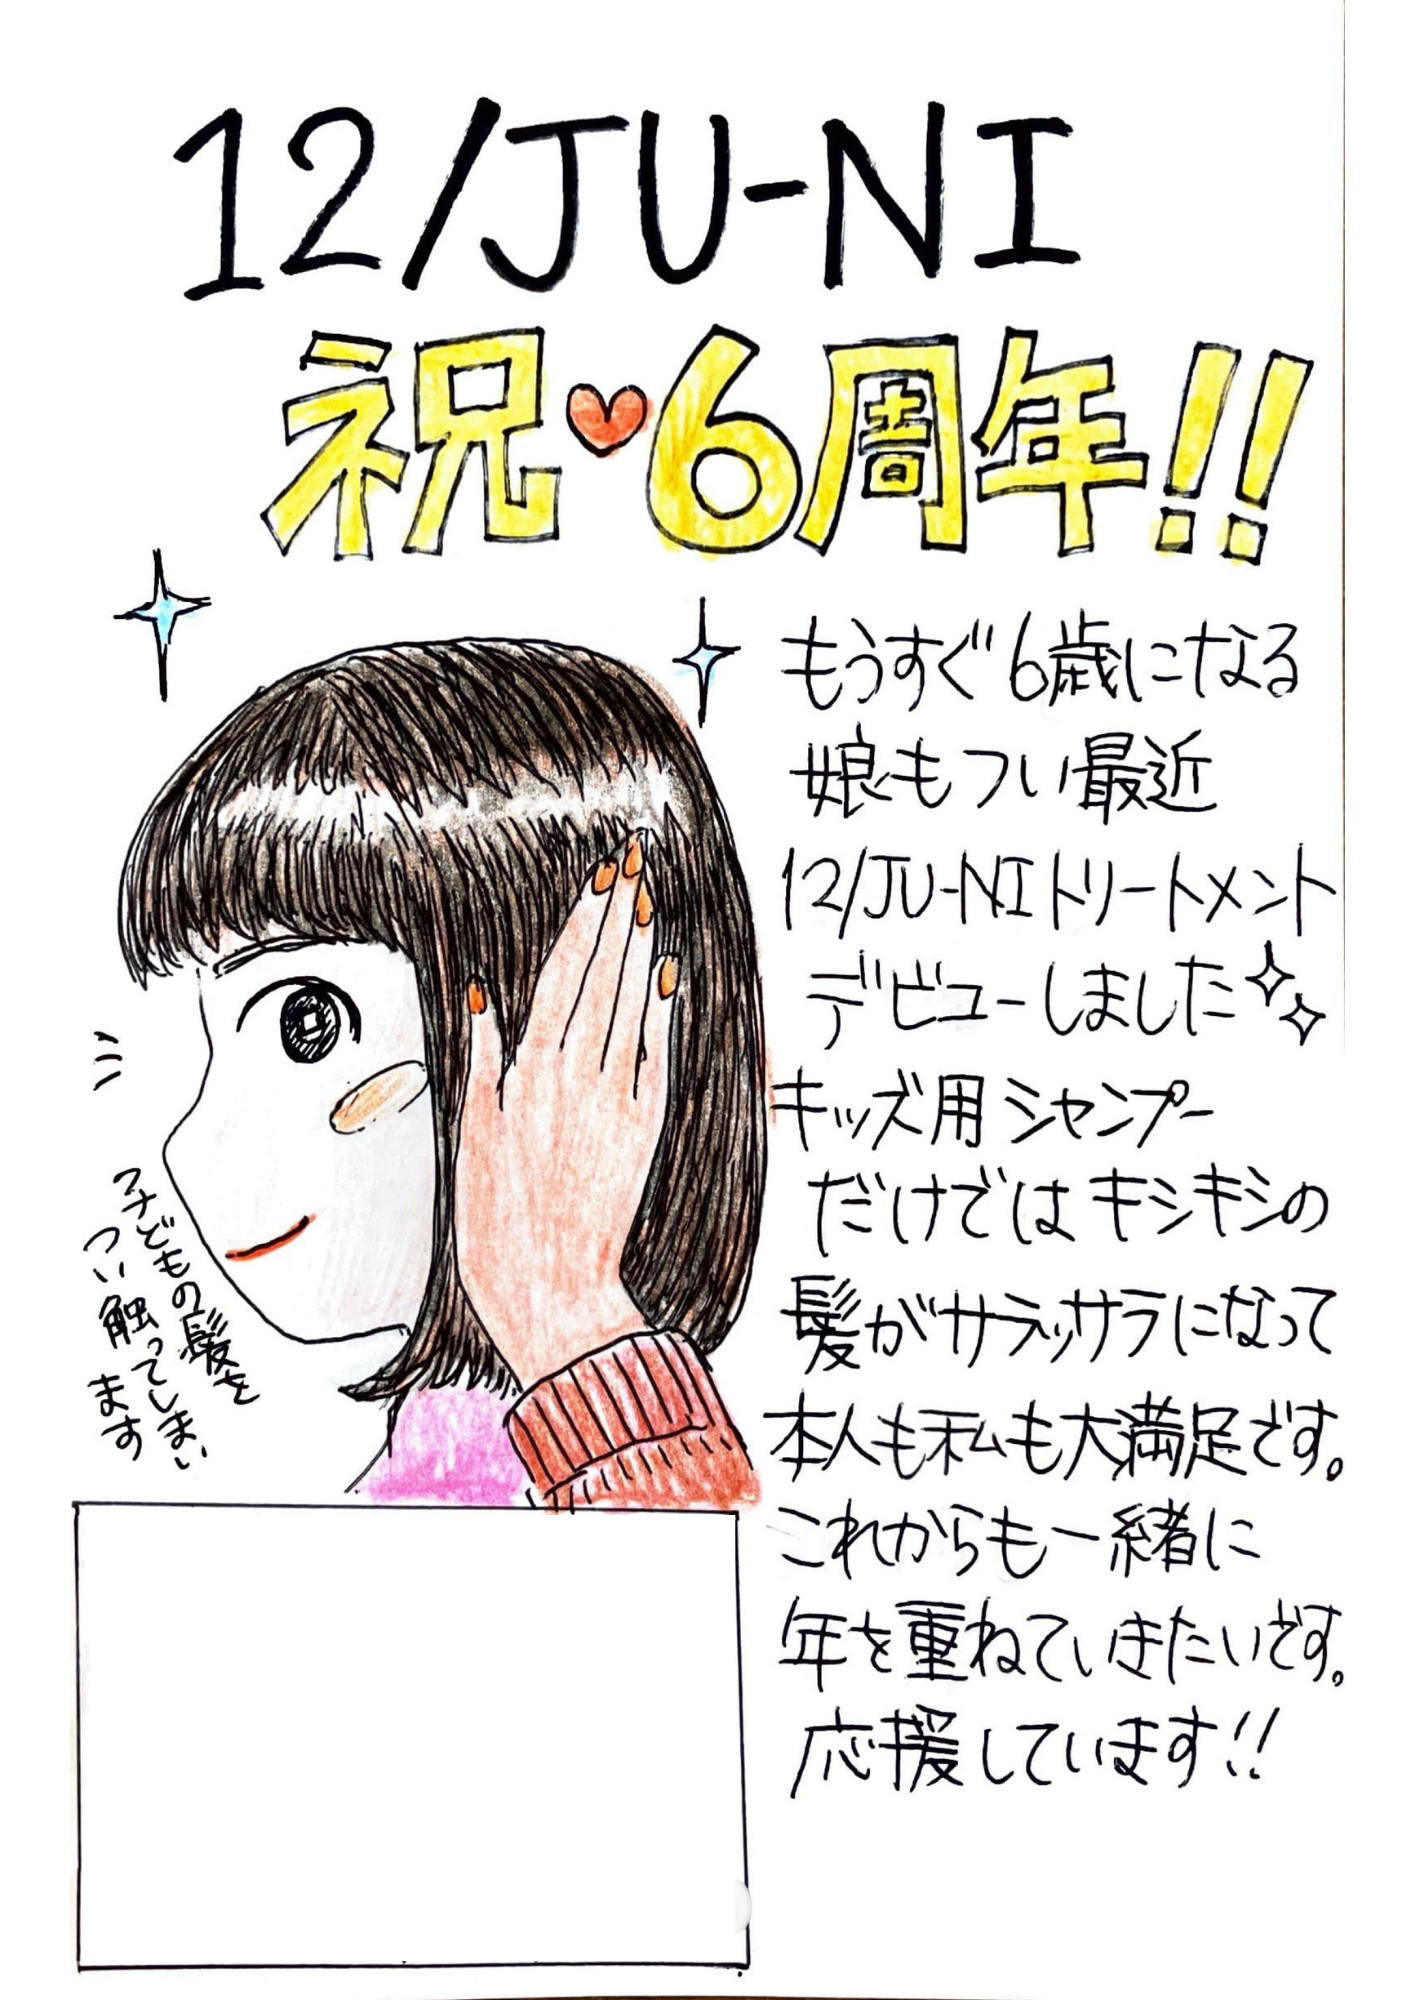 12/JU-NI
祝♥6周年!!
もうすぐ6歳になる
娘もつい最近
12/JU-NIトリートメント
デビューしました✧✧
キッズ用シャンプー
だけではキシキシの
髪がサラッサラになって
本人も私も大満足です。
これからも一緒に
年を重ねていきたいです。
応援しています!!
子どもの髪を
つい触ってしまい
ます